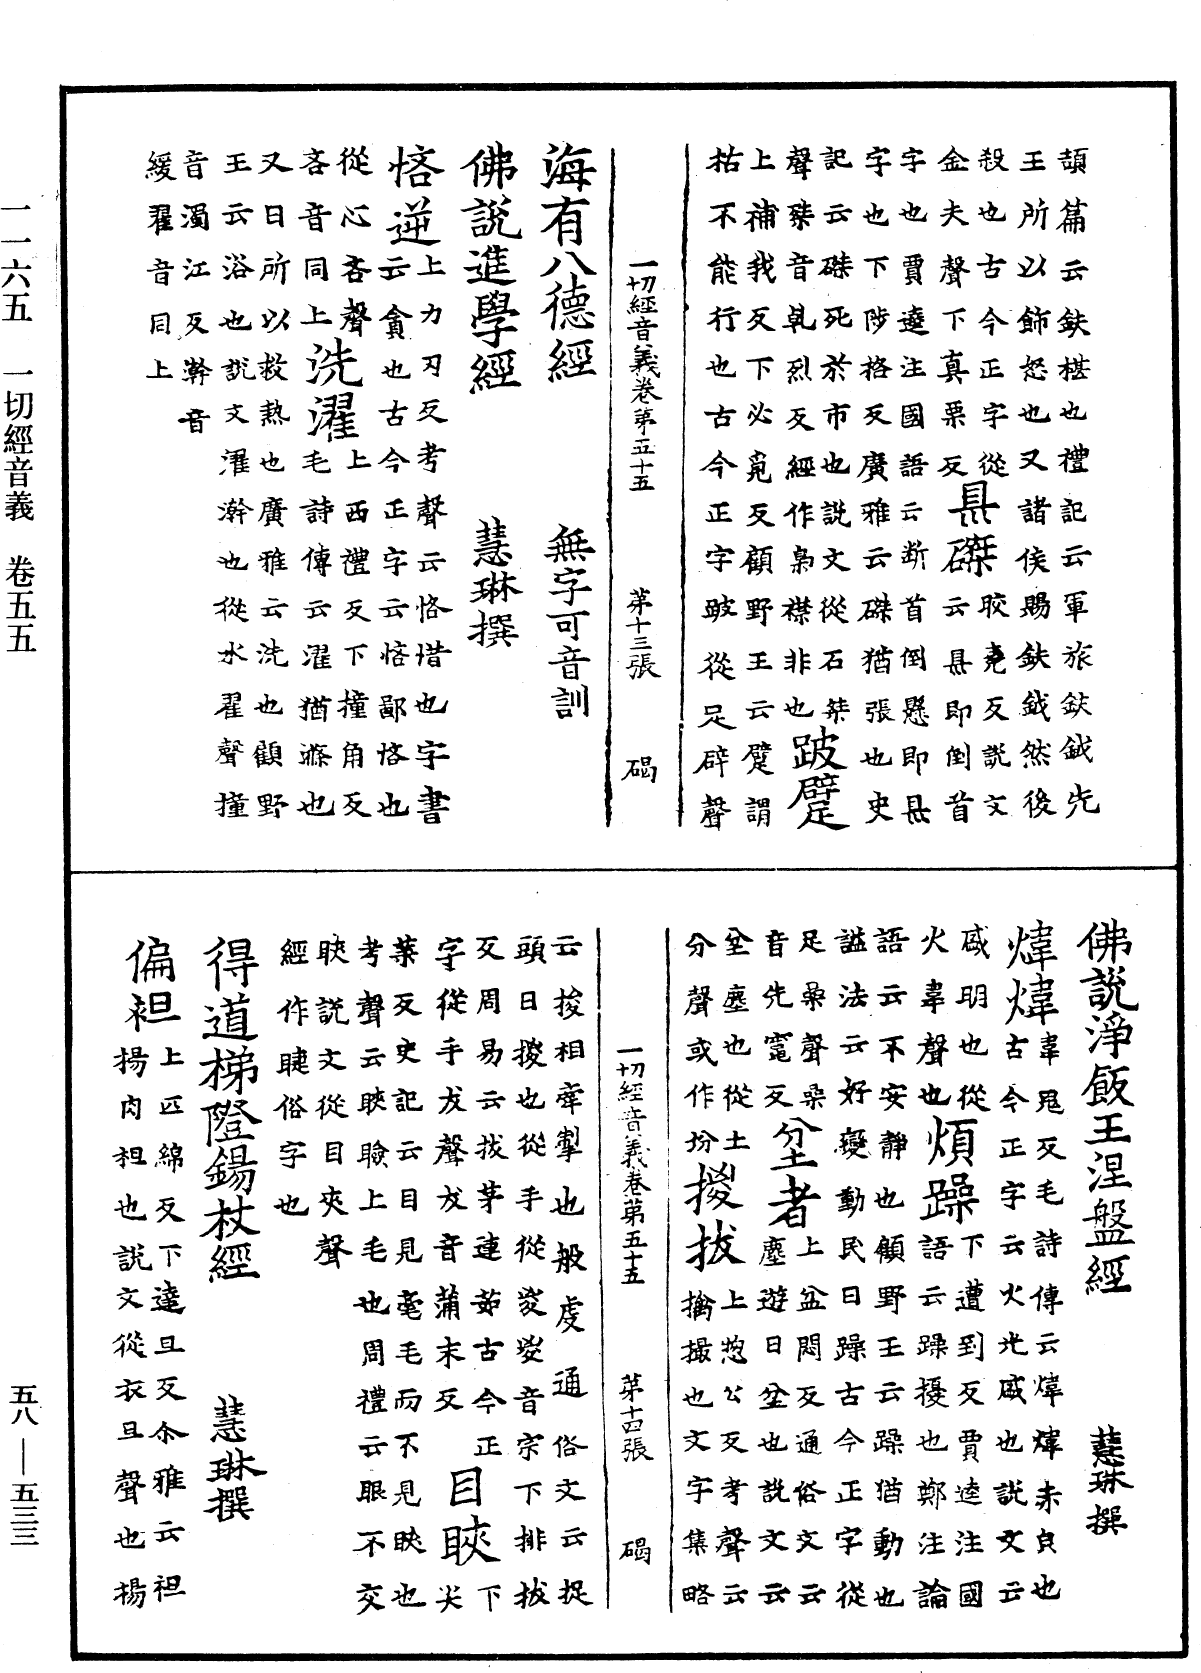 一一六五　一切經音義　卷五五
五八—五三三
頡篇云鈇椹也禮記云軍旅鈇鉞先
王所以飾怒也又諸侯賜鈇鉞然後
殺也古今正字從
金夫聲下真栗反
㬎磔
上皎堯反說文
云㬎即倒首
字也賈逵注國語云斷首倒懸即㬎
字也下陟格反廣雅云磔猶張也史
記云磔死於市也說文從石桀
聲桀音乹烈反經作梟襟非也
跛躄
上補我反下必覓反顧野王云躄謂
拈不能行也古今正字跛從足辟聲
一切經音義卷第五十五　第十三張　碣
海有八德經　無字可音訓
佛說進學經　慧琳撰
悋逆
上力刃反考聲云悋惜也字書
云貪也古今正字云悋鄙悋也
從心吝聲
吝音同上
洗濯
上西禮反下撞角反
毛詩傳云濯猶滌也
又曰所以救熱也廣雅云洗也顧野
王云浴也說文濯澣也從水翟聲撞
音濁江反澣音
緩翟音同上
佛說淨飯王涅盤經　慧琳撰
煒煒
韋鬼反毛詩傳云煒煒赤皃也
古今正字云火光盛也說文云
盛明也從
火韋聲也
煩躁
下遭到反賈逵注國
語云躁擾也鄭注論
語云不安靜也顧野王云躁猶動也
謚法云好變動民曰躁古今正字從
足喿聲喿
音先竈反
坌者
上盆悶反通俗文云
塵遊曰坌也說文云
坌塵也從土
分聲或作坋
㨑拔
上惣公反考聲云
擒撮也文字集略
一切經音義卷第五十五　第十四張　碣
云捘相牽掣也般虔通俗文云捉
頭曰㨑也從手從㚇㚇音宗下排拔
反周易云拔茅連茹古今正
字從手犮聲犮音蒲末反
目䀹
下尖
葉反史記云目見毫毛而不見䀹也
考聲云䀹瞼上毛也周禮云眼不交
䀹說文從目夾聲
經作睫俗字也
得道梯隥錫杖經　慧琳撰
偏袒
上匹綿反下達旦反尒雅云袒
楊肉袒也說文從衣旦聲也楊